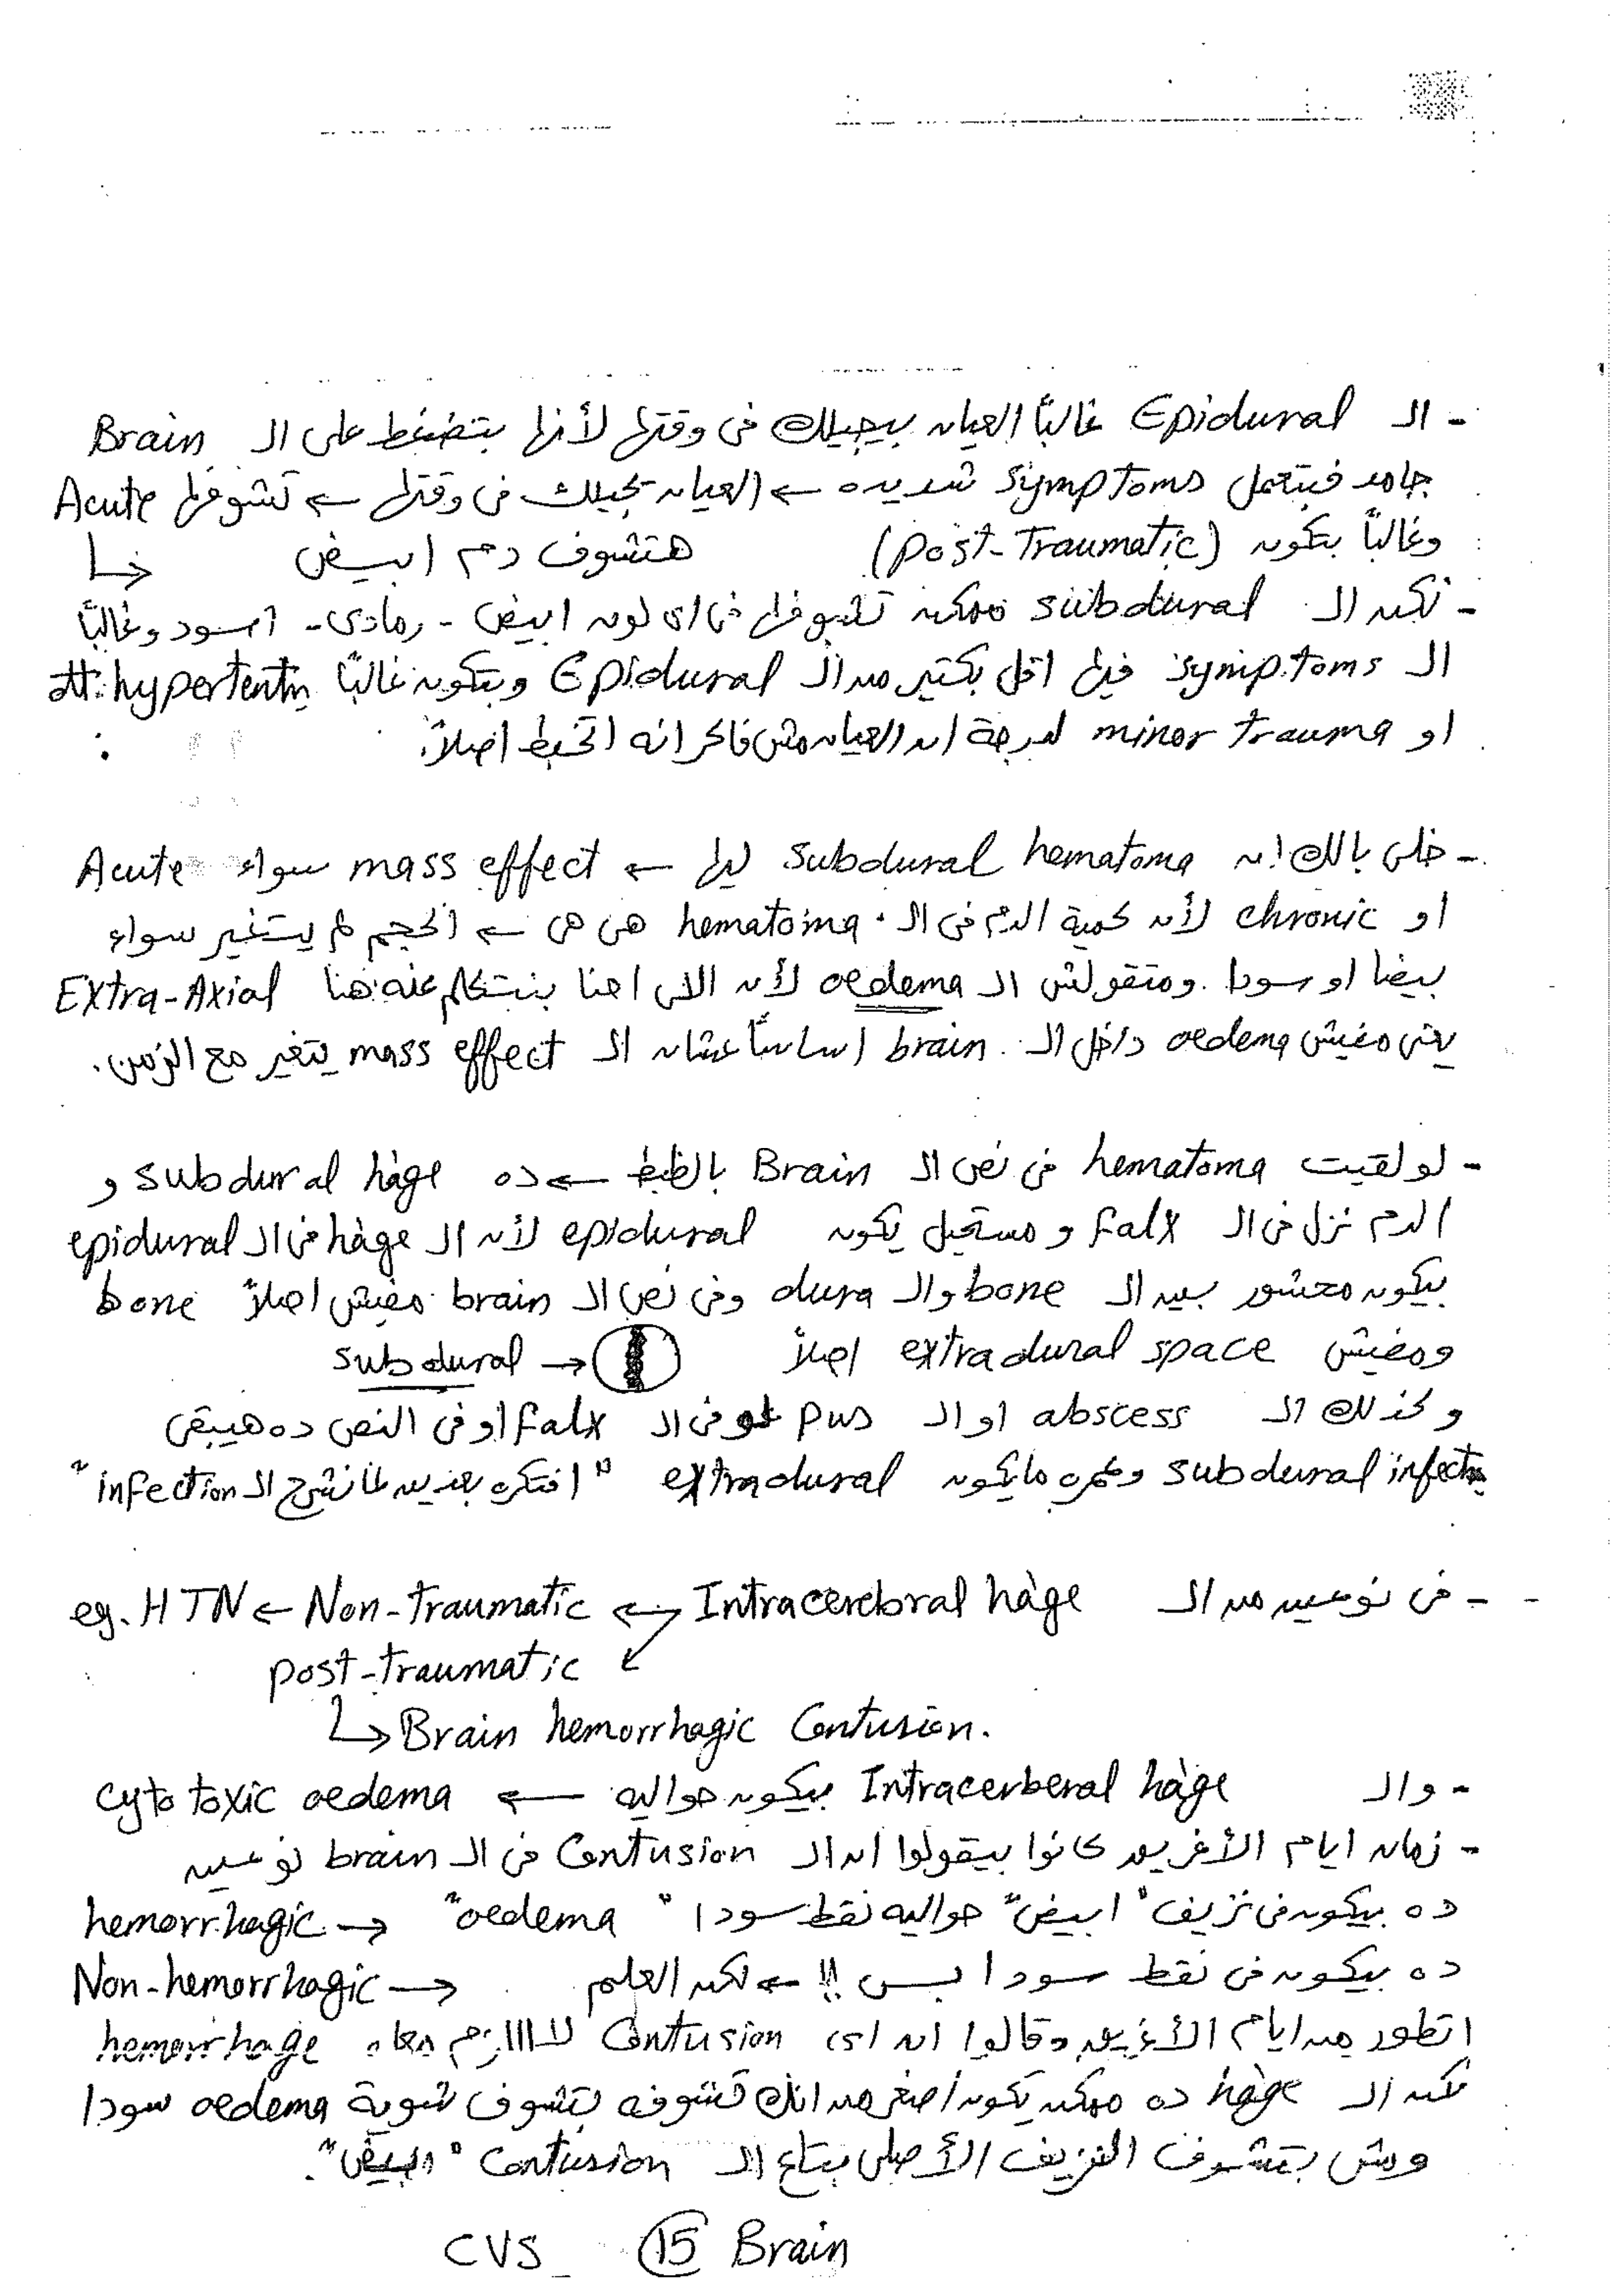 - الـ Epidural غالباً العيان بيجيلك في وقتها لأنها بتضغط على الـ Brain
جامد فبتعمل symptoms شديده ← العيان بيجيلك في وقتها ← تشوفها Acute
وغالباً بتكون (post-Traumatic) هتشوف دم ابيض
- لكن الـ subdural ممكن تشوفها في اى لون ابيض - رمادى - اسود وغالباً
الـ symptoms فيها اقل بكتير من الـ Epidural وبتكون غالباً hypertentn
او minor trauma لدرجة ان العيان مش فاكر انه اتخبط اصلاً.
- خلى بالك ان Subdural hematoma ليها ← mass effect سواء Acute
او chronic لأن كمية الدم فى الـ hematoma هى هى ← الحجم لم يتغير سواء
بيضا او سودا. ومتقولش الـ oedema لأن اللى احنا بنتكلم عنه هنا Extra-Axial
يعنى مفيش oedema داخل الـ brain اساساً عشان الـ mass effect يتغير مع الزمن.
- لو لقيت hematoma فى نص الـ Brain بالظبط ← ده subdural hage و
الدم نزل فى الـ Falx و مستحيل يكون epidural لأن الـ hage فى الـ epidural
بيكون محشور بين الـ bone والـ dura وفى نص الـ brain مفيش اصلاً bone
ومفيش extradural space اصلاً subdural →
وكذلك الـ abscess او الـ pus لو فى الـ Falx او فى النص ده هيبقى
subdural infectn وعمره مايكون extradural "افتكره بعدين لما نشرح الـ infection"
- فى نوعين من الـ Intracerebral hage ← Non-traumatic ← eg. HTN
post-traumatic
↳ Brain hemorrhagic Contusion.
- والـ Intracerberal hage بيكون حواليه ← Cytotoxic oedema
- زمان ايام الأغريق كانوا بيقولوا ان الـ Contusion فى الـ brain نوعين
hemorrhagic → ده بيكون فى نزيف "ابيض" حواليه نقط سودا "oedema"
Non-hemorrhagic → ده بيكون فى نقط سودا بس !! ← لكن العلم
اتطور من ايام الأغريق وقالوا ان اى Contusion لااااازم معاه hemorrhage
لكن الـ hage ده ممكن يكون أصغر من انك تشوفه بتشوف شوية oedema سودا
ومش بتشوف النزيف الأصلى بتاع الـ Contusion "البيض".
CVS 15 Brain